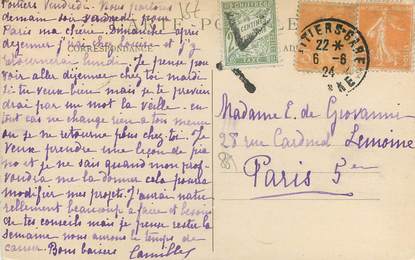 Poitiers Vendredi. Nous partons
demain soir vendredi pour
Paris ma chère. Dimanche après
déjeuner j'irai
retournerai lundi. Je pense pou
voir aller déjeuner chez toi mardi
si tu veux bien mais je te prévien
drai par un mot la veille - en
tout cas ne change rien à ton menu
ou je ne retourne plus chez toi. Je
veux prendre une leçon de pia
no et je ne sais quand mon prof
voudra me la donner cela pourra
modifier mes projets. J'aurai natu
rellement beaucoup à faire et besoin
de tes conseils mais je pense rester la
semaine nous aurons le temps de
causer. Bons baisers Camille
CARTE POSTALE
CORRESPONDANCE
T
POITIERS-GARE
22 -*
6 - 6
24
VIENNE
Madame E. de Giovanni
28 rue Cardinal Lemoine
Paris 5e